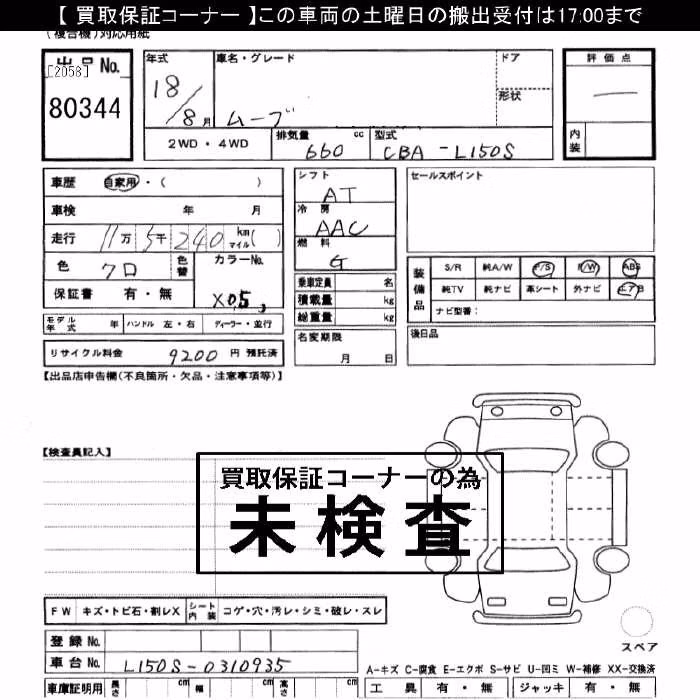 【 買取保証コーナー 】この車両の土曜日の搬出受付は17:00まで
(複合機)対応用紙
出品No.
[2058]
80344
年式
18/8月
車名・グレード
ムーブ
ドア
形状
評価点
内装
2WD・4WD
排気量 cc
660
型式
CBA-L150S
車歴 自家用・( )
車検 年 月
走行 11万5千240 km マイル( )
色 クロ
色替
カラーNo.
X05
保証書 有・無
モデル年式 年 ハンドル 左・右 ディーラー・並行
リサイクル料金 9200 円 預託済
シフト
AT
冷房
AAC
燃料
G
乗車定員 名
積載量 kg
総重量 kg
名変期限
月 日
セールスポイント
装備品
S/R 純A/W P/S P/W ABS
純TV 純ナビ 革シート 外ナビ エアB
ナビ型番:
後日品
【出品店申告欄(不良箇所・欠品・注意事項等)】
【検査員記入】
買取保証コーナーの為
未検査
FW キズ・トビ石・割レX シート内装 コゲ・穴・汚レ・シミ・破レ・スレ
登録No.
車台No. L150S-0310935
車庫証明用 長さ cm 幅 cm 高さ cm
スペア
A-キズ C-腐食 E-エクボ S-サビ U-凹ミ W-補修 XX-交換済
工具 有・無 ジャッキ 有・無